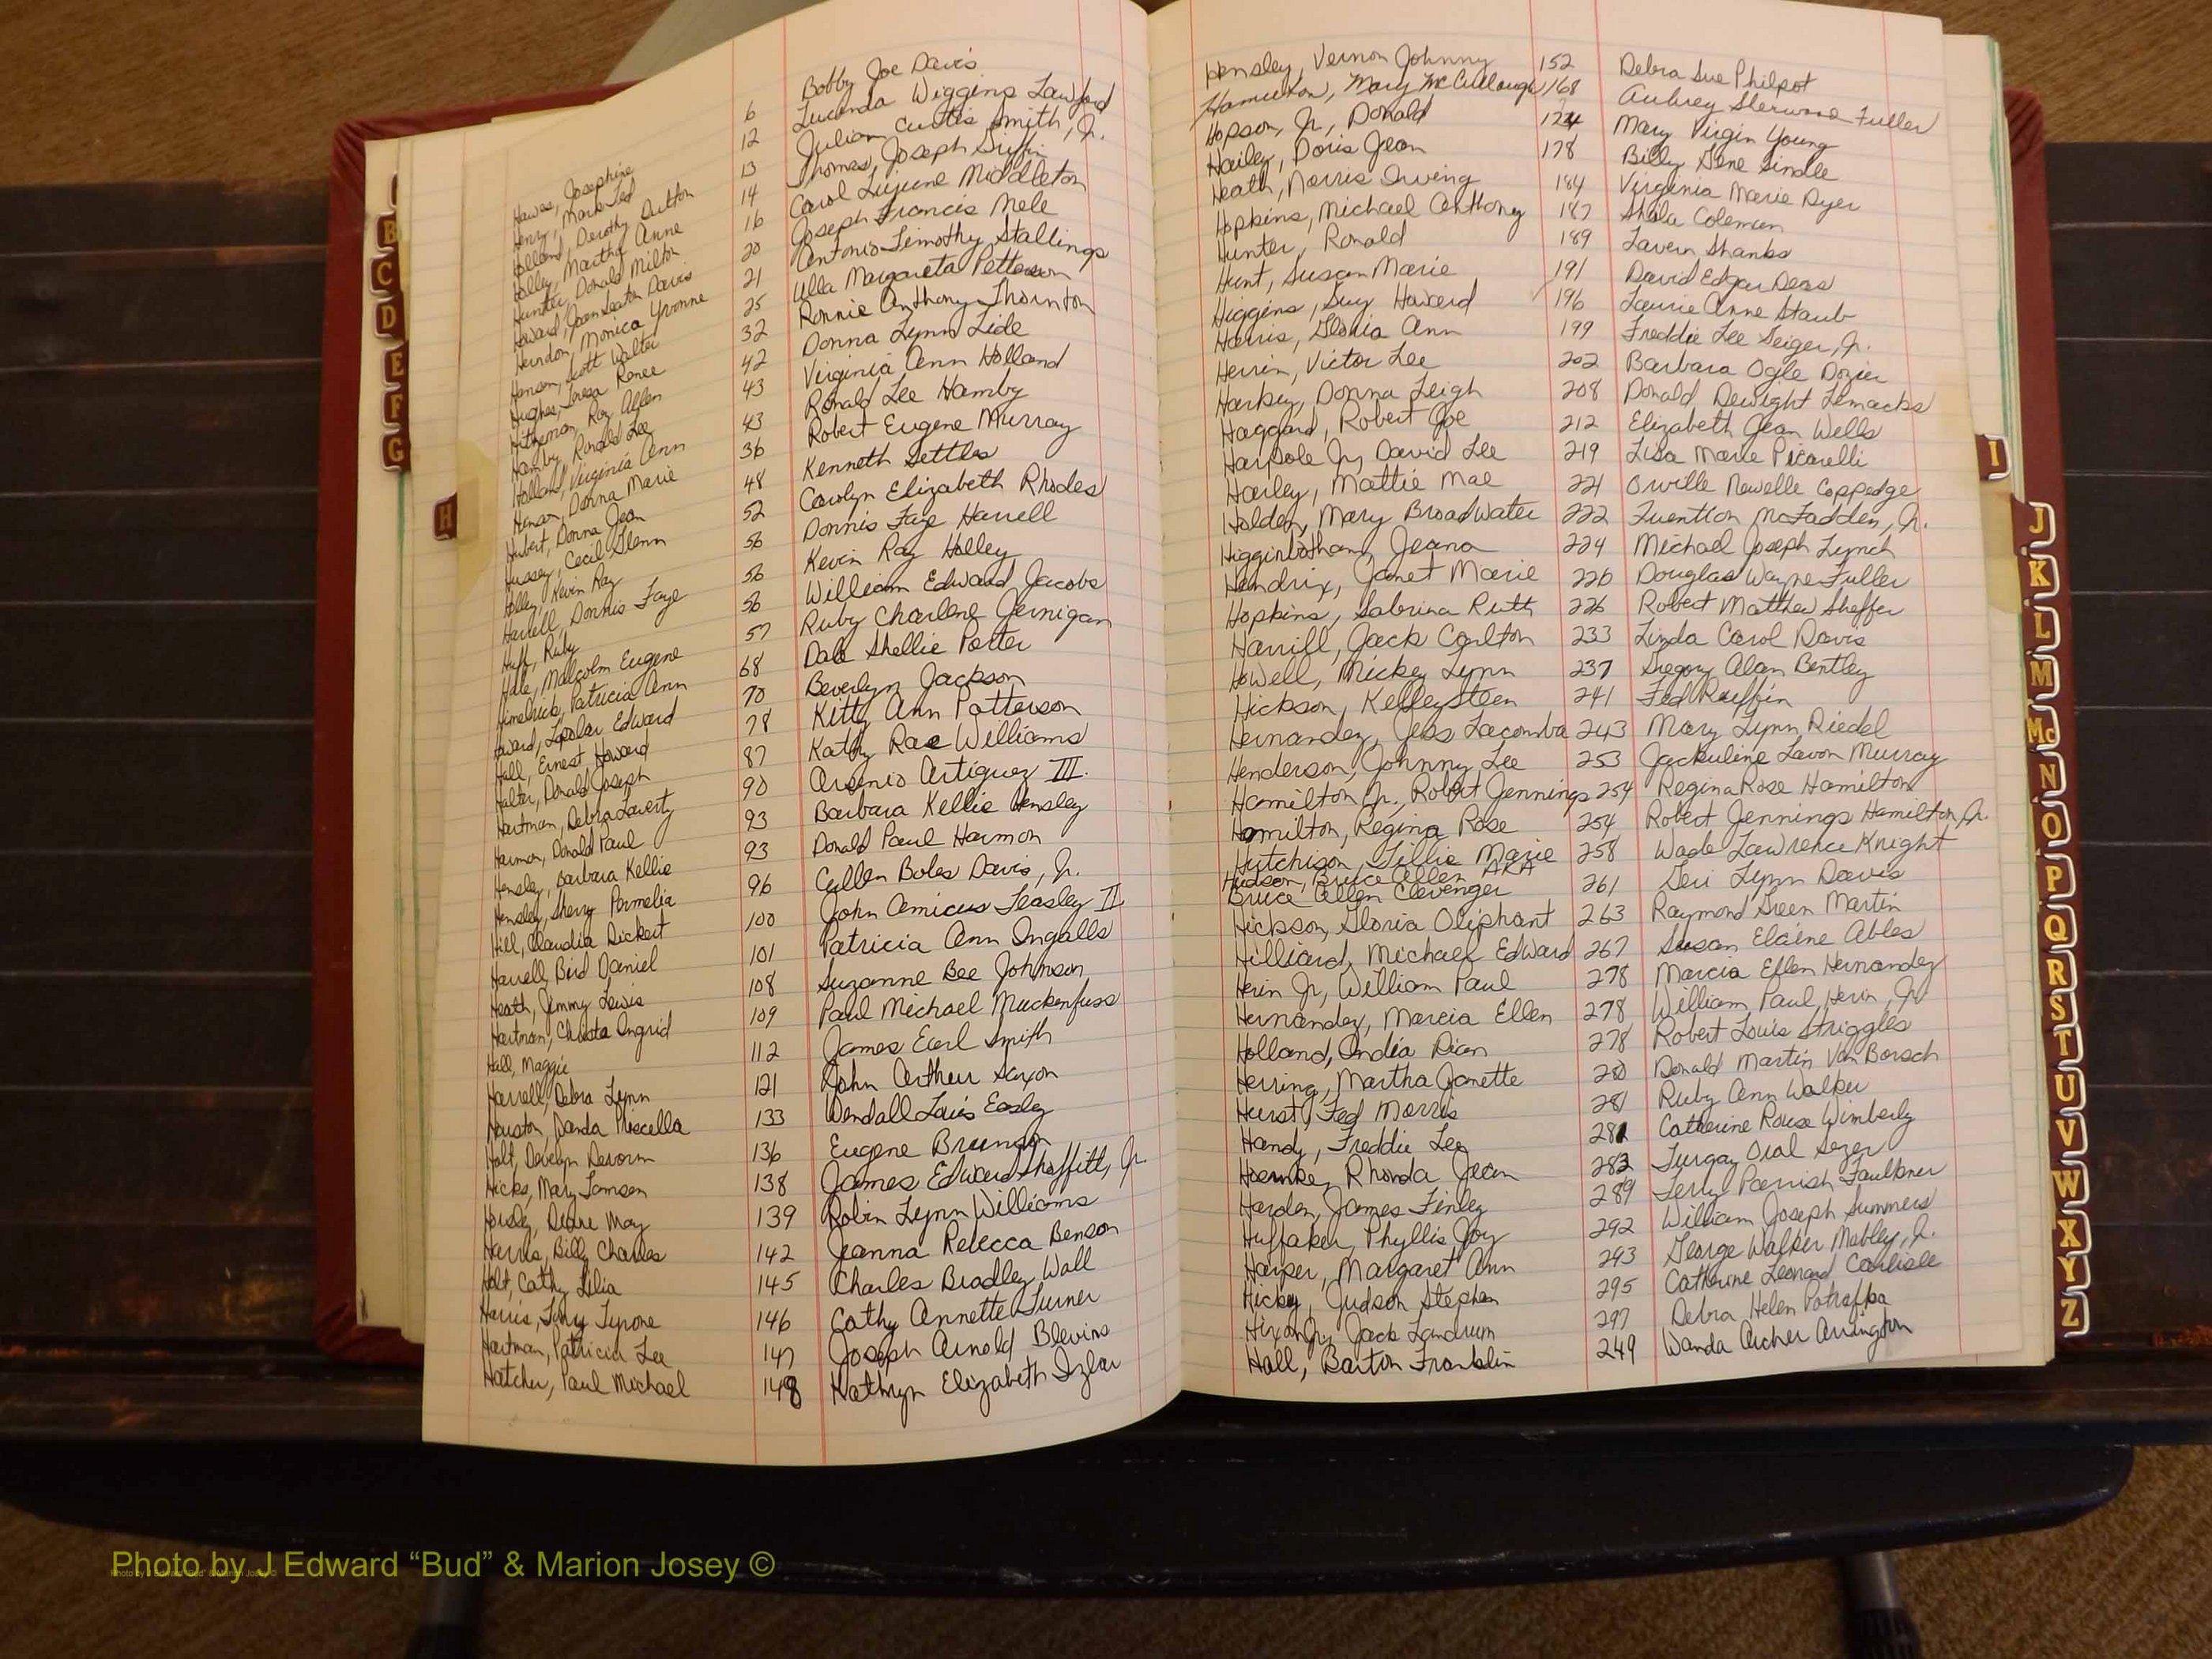 Hawes, Josephine 6 Bobby Joe Davis
Henry, Mark Ted 12 Lucinda Wiggins Lawford
Holland, Dorothy Dutton 13 Julian Curtis Smith, Jr.
Holley, Martha Anne 14 Thomas Joseph
Hunter, Donald Milton 16 Carol Middleton
Howard, Joan Seaton Davis 20 Joseph Francis Mele
Herndon, Monica Yvonne 21 Antonio Timothy Stallings
Hanson, Scott Walter 25 Ulla Margareta Petterson
Hughes, Teresa Renee 32 Ronnie Anthony Thornton
Hitzeman, Roy Allen 42 Donna Lynn Lide
Hamby, Ronald Lee 43 Virginia Ann Holland
Holland, Virginia Ann 43 Ronald Lee Hamby
Henson, Donna Marie 36 Robert Eugene Murray
Hubert, Donna Jean 48 Kenneth Settles
Hussey, Cecil Glenn 52 Carolyn Elizabeth Rhodes
Holley, Kevin Ray 56 Donnis Faye Harrell
Harrell, Donnis Faye 56 Kevin Ray Holley
Huff, Ruby 56 William Edward Jacobs
Hale, Malcolm Eugene 57 Ruby Charlene Jernigan
Himelrick, Patricia Ann 68 Dale Shellie Porter
Howard, Edward 70 Beverlyn Jackson
Hall, Ernest Howard 78 Kitty Ann Patterson
Halter, Donald Joseph 87 Kathy Rae Williams
Hartman, Debra Laverty 90 Arsenio Artiguez III.
Harmon, Donald Paul 93 Barbara Kellie Hensley
Hensley, Barbara Kellie 93 Donald Paul Harmon
Hensley, Sherry Permelia 96 Cullen Boles Davis, Jr.
Hill, Claudia Dickert 100 John Amicus Teasley II
Harrell, Bird Daniel 101 Patricia Ann Ingalls
Heath, Jimmy Lewis 108 Suzanne Bee Johnson
Hartman, Christa Ingrid 109 Paul Michael Muckenfuss
Hall, Maggie 112 James Earl Smith
Harrell, Debra Lynn 121 John Arthur Saxon
Houston, Danda Priscella 133 Wendall Louis Easley
Holt, Develyn Devorn 136 Eugene Brunson
Hicks, Mary Tamsen 138 James Edward Shoffitt, Jr.
Horsley, Diane May 139 Robin Lynn Williams
Harris, Billy Charles 142 Jeanna Rebecca Benson
Holt, Cathy Lilia 145 Charles Bradley Wall
Harris, Tony Tyrone 146 Cathy Annette Turner
Hartman, Patricia Lee 147 Joseph Arnold Blevins
Hatcher, Paul Michael 148 Kathryn Elizabeth Izlar
Hensley, Vernon Johnny 152 Debra Sue Philpot
Hamilton, Mary McCullough 168 Aubrey Sherwood Fuller
Hopson, Jr., Donald 174 Mary Virgin Young
Hailey, Doris Jean 178 Billy Gene Sindle
Heath, Norris Irving 184 Virginia Marie Dyer
Hopkins, Michael Anthony 187 Shila Coleman
Hunter, Ronald 189 Lavern Shanks
Hunt, Susan Marie 191 David Edgar Deas
Higgins, Guy Howard 196 Laurie Anne Staub
Harris, Gloria Ann 199 Freddie Lee Geiger, Jr.
Herrin, Victor Lee 202 Barbara Ogle Dozier
Harkey, Donna Leigh 208 Donald Dewight Lemacks
Haggard, Robert Joe 212 Elizabeth Jean Wells
Harpole Jr, David Lee 219 Lisa Marie Picarelli
Harley, Mattie Mae 221 Orville Newelle Coppedge
Holden, Mary Broadwater 222 Fuention McFadden, Jr.
Higginbotham, Jeana 224 Michael Joseph Lynch
Hendrix, Janet Marie 226 Douglas Wayne Fuller
Hopkins, Sabrina Ruth 226 Robert Matthew Sheffer
Harrill, Jack Carlton 233 Linda Carol Davis
Howell, Mickey Lynn 237 Gregory Alan Bentley
Hickson, Kelley Steen 241 Ted Rauffin
Hernandez, Jess Lacomba 243 Mary Lynn Riedel
Henderson, Johnny Lee 253 Jackuline Lavon Murray
Hamilton Jr., Robert Jennings 254 Regina Rose Hamilton
Hamilton, Regina Rose 254 Robert Jennings Hamilton, Jr.
Hutchison, Lillie Marie 258 Wade Lawrence Knight
Hudson, Bruce Allen AKA
Bruce Allen Clevenger 261 Geri Lynn Davis
Hickson, Gloria Oliphant 263 Raymond Green Martin
Hilliard, Michael Edward 267 Susan Elaine Ables
Herin Jr, William Paul 278 Marcia Ellen Hernandez
Hernandez, Marcia Ellen 278 William Paul Herin, Jr
Holland, India Dian 278 Robert Louis Striggles
Herring, Martha Janette 280 Donald Martin Van Borsch
Hurst, Ted Morris 281 Ruby Ann Walker
Handy, Freddie Lee 281 Catherine Rouse Wimberly
Hoemke, Rhonda Jean 283 Turgay Oral Sezer
Harden, James Finley 289 Terry Parrish Faulkner
Huffaker, Phyllis Joy 292 William Joseph Summers
Harper, Margaret Ann 293 George Walker Mobley, Jr.
Hickey, Judson Stephen 295 Catherine Leonard Carlisle
Hixon Jr, Jack Landrum 297 Debra Helen Potraffka
Hall, Barton Franklin 249 Wanda Archer Arrington
B
C
D
E
F
G
H
I
J
K
L
M
Mc
N
O
P
Q
R
S
T
U
V
W
X
Y
Z
Photo by J Edward “Bud” & Marion Josey ©